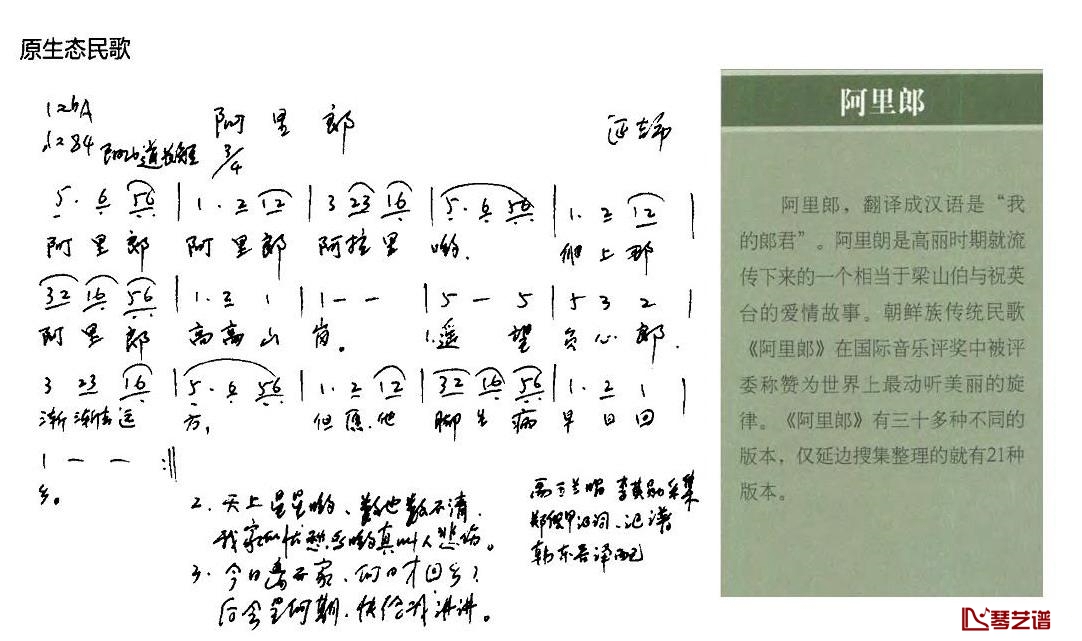 原生态民歌
1=bA
1=84
阿里郎
3/4
5. 6 56 | 1. 2 12 | 3 23 16 | 5. 6 56 | 1. 2 12 |
阿里郎 阿里郎 阿拉里 哟. 爬上那
32 16 56 | 1. 2 1 | 1 - - | 5 - 5 | 5 3 2 |
阿里郎 高高山 岗。 1.遥 望 负心郎.
3 23 16 | 5. 6 56 | 1. 2 12 | 32 16 56 | 1. 2 1 |
渐渐去远 方, 但愿他 脚生病 早日回
1 - - :||
乡。
2. 天上星星哟、数也数不清.
我家的忧愁哟真叫人悲伤。
3. 今日离开家.何日才回乡?
后会是何期.快给我讲讲。
李其勋采集
词、记谱
韩东吾译配
阿里郎
阿里郎，翻译成汉语是“我
的郎君”。阿里朗是高丽时期就流
传下来的一个相当于梁山伯与祝英
台的爱情故事。朝鲜族传统民歌
《阿里郎》在国际音乐评奖中被评
委称赞为世界上最动听美丽的旋
律。《阿里郎》有三十多种不同的
版本，仅延边搜集整理的就有21种
版本。
琴艺谱